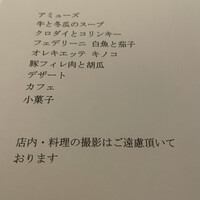 アミューズ
牛と冬瓜のスープ
クロダイとコリンキー
フェデリーニ 白魚と茄子
オレキエッテ キノコ
豚フィレ肉と胡瓜
デザート
カフェ
小菓子
店内・料理の撮影はご遠慮頂いて
おります